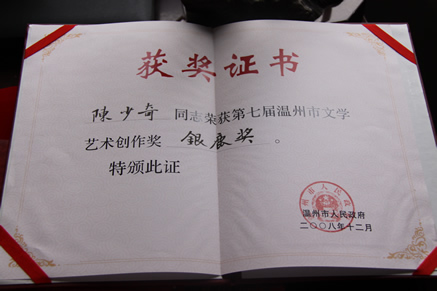 获奖证书
陳少奇 同志荣获第七届温州市文学
艺术创作奖 銀鹿奖 。
特颁此证
温州市人民政府
二〇〇八年十二月